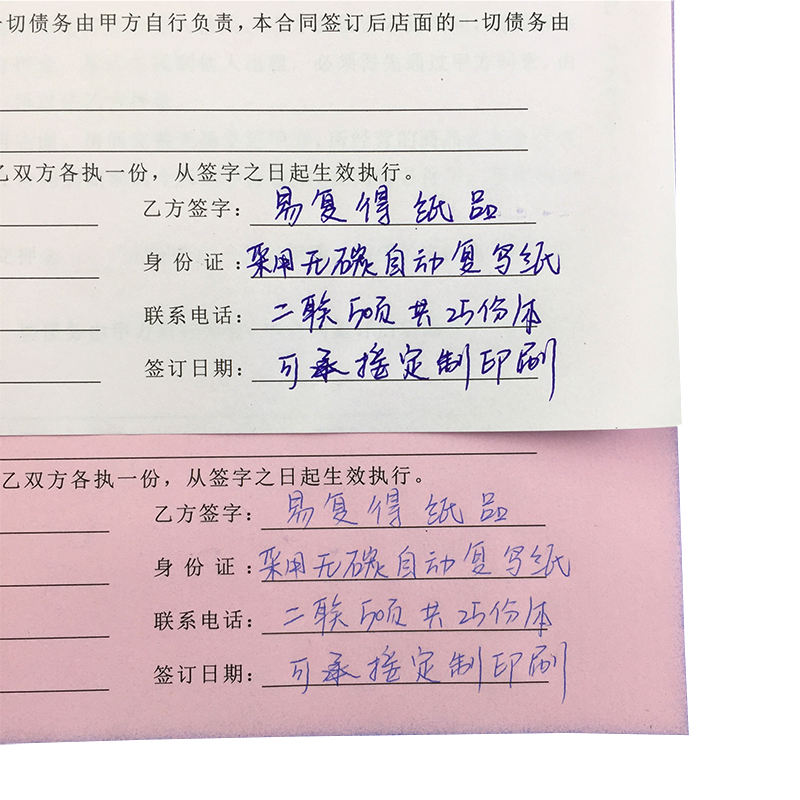 一切债务由甲方自行负责，本合同签订后店面的一切债务由
乙双方各执一份，从签字之日起生效执行。
乙方签字：易复得纸品
身份证：采用无碳自动复写纸
联系电话：二联50页共25份/本
签订日期：可承接定制印刷
乙双方各执一份，从签字之日起生效执行。
乙方签字：易复得纸品
身份证：采用无碳自动复写纸
联系电话：二联50页共25份/本
签订日期：可承接定制印刷